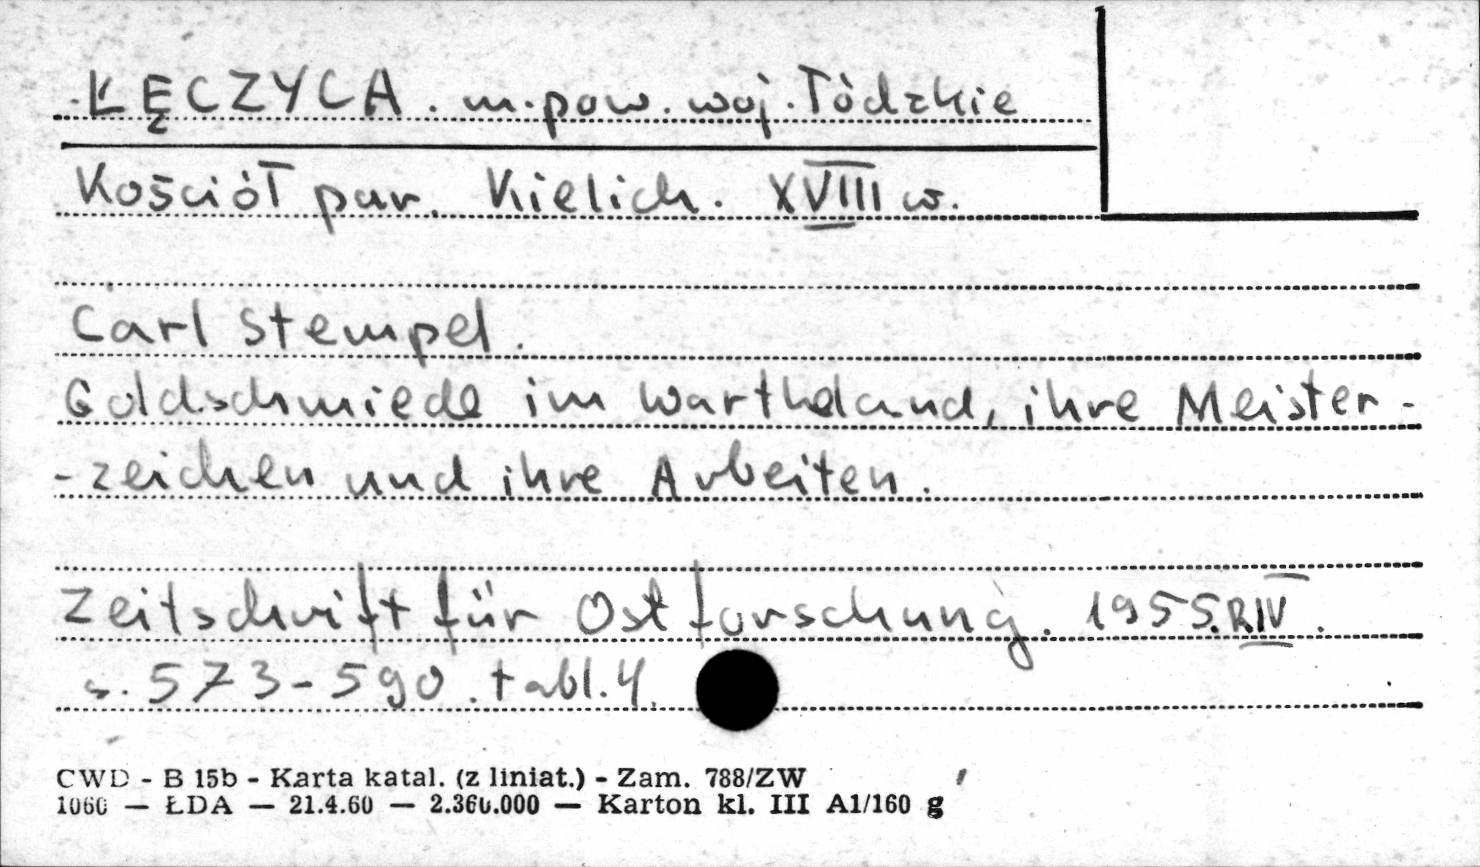 ŁĘCZYCA. m.pow. woj. Łódzkie
Kościół par. Kielich. XVIII w.
Carl Stempel.
Goldschmiede im Wartheland, ihre Meister-
-zeichen und ihre Arbeiten.
Zeitschrift für Ostforschung. 1955.R.IV.
s. 573-590. tabl. 4.
CWD - B 15b - Karta katal. (z liniat.) - Zam. 788/ZW
1060 — ŁDA — 21.4.60 — 2.360.000 — Karton kl. III A1/160 g